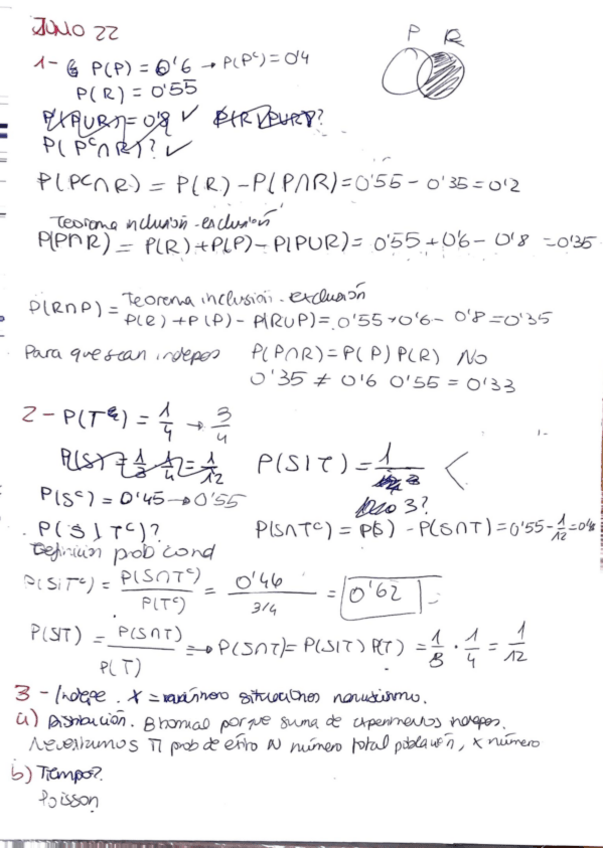 JUNIO 22
P R
1- P(P) = 0'6 → P(Pᶜ) = 0'4
P(R) = 0'55
P(PUR) = 0'8 ✓
P(Pᶜ∩R)? ✓
P(Pᶜ∩R) = P(R) - P(P∩R) = 0'55 - 0'35 = 0'2
Teorema inclusión-exclusión
P(P∩R) = P(R) + P(P) - P(PUR) = 0'55 + 0'6 - 0'8 = 0'35
Teorema inclusión-exclusión
P(R∩P) = P(R) + P(P) - P(RUP) = 0'55 + 0'6 - 0'8 = 0'35
Para que sean indepes P(P∩R) = P(P) P(R) NO
0'35 ≠ 0'6 0'55 = 0'33
2- P(Tᶜ) = 1/4 → 3/4
P(S) = 1/3 · 1/4 = 1/12 P(S|T) = 1
P(Sᶜ) = 0'45 → 0'55 3?
P(S|Tᶜ)? P(S∩Tᶜ) = P(S) - P(S∩T) = 0'55 - 1/12 =
Definición prob cond
P(S|Tᶜ) = P(S∩Tᶜ)/P(Tᶜ) = 0'46/3/4 = 0'62
P(S|T) = P(S∩T)/P(T) → P(S∩T) = P(S|T) P(T) = 1/3 · 1/4 = 1/12
3- Indepe. X = número situaciones
a) Distribución. Binomial porque suma de experimentos indepes.
Necesitamos Π prob de éxito N número total población, x número
b) Tiempo?
Poisson